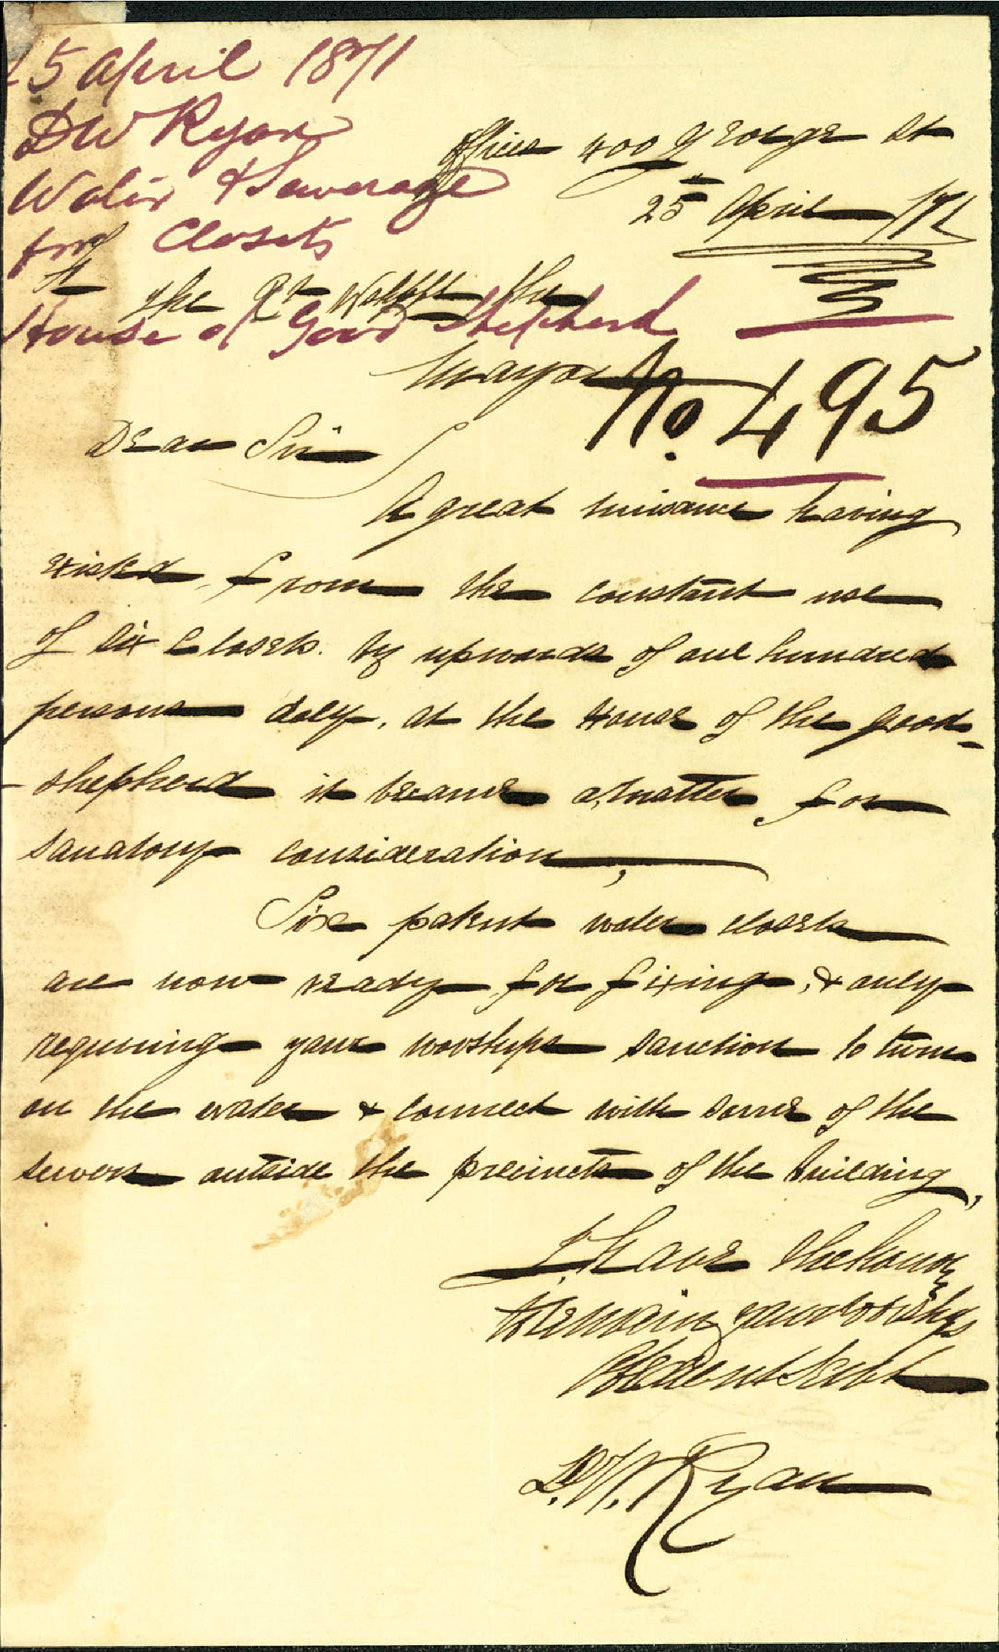 25 April 1871
D W Ryan
Water & Sewerage
for Closets
at
House of Good Shepherd
Office 400 George St
25th April /71
To the Rt Wshpfl the
Mayor
No. 495
Dear Sir
A great nuisance having
existed from the constant use
of six closets. by upwards of one hundred
persons daly, at the House of the Good-
-shepherd it became a matter for
sanatory consideration,
Six patent water closets
are now ready for fixing, & only
requiring your worships sanction to turn
on the water & connect with some of the
sewers outside the precincts of the building,
I have the honor
to remain your worships
Obedient Servt
D. W. Ryan